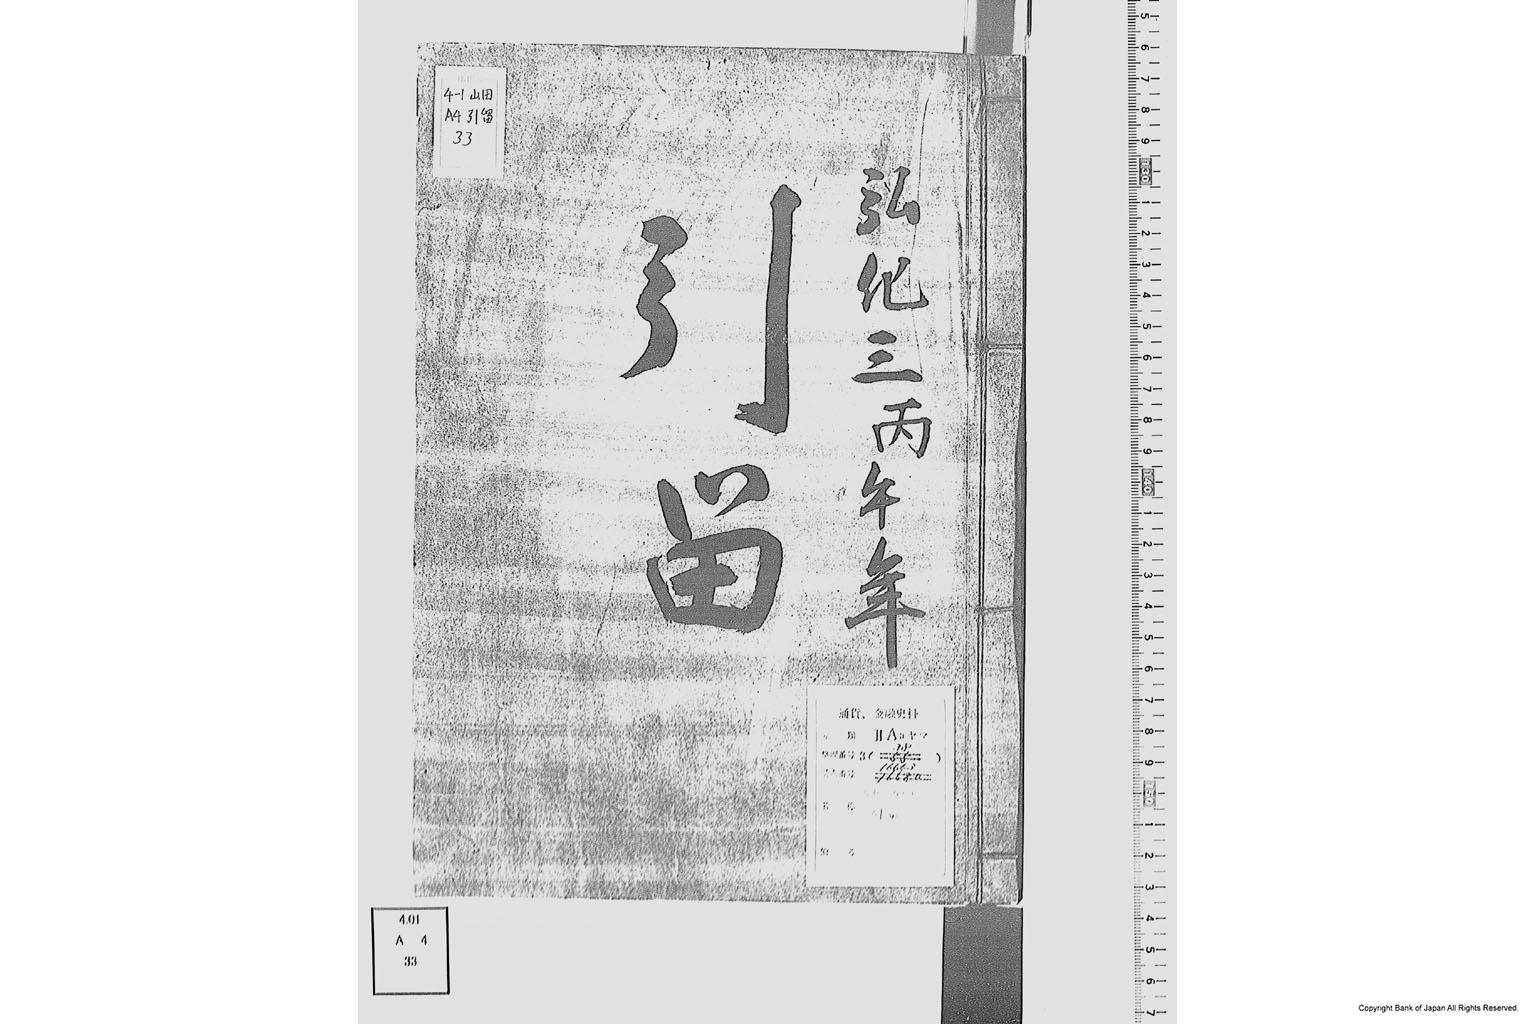 4-1 山田
A4 引留
33
弘化三丙午年
引留
通貨、金融史料
ⅡAaヤマ
3(
16663
4.01
A 4
33
Copyright Bank of Japan All Rights Reserved.